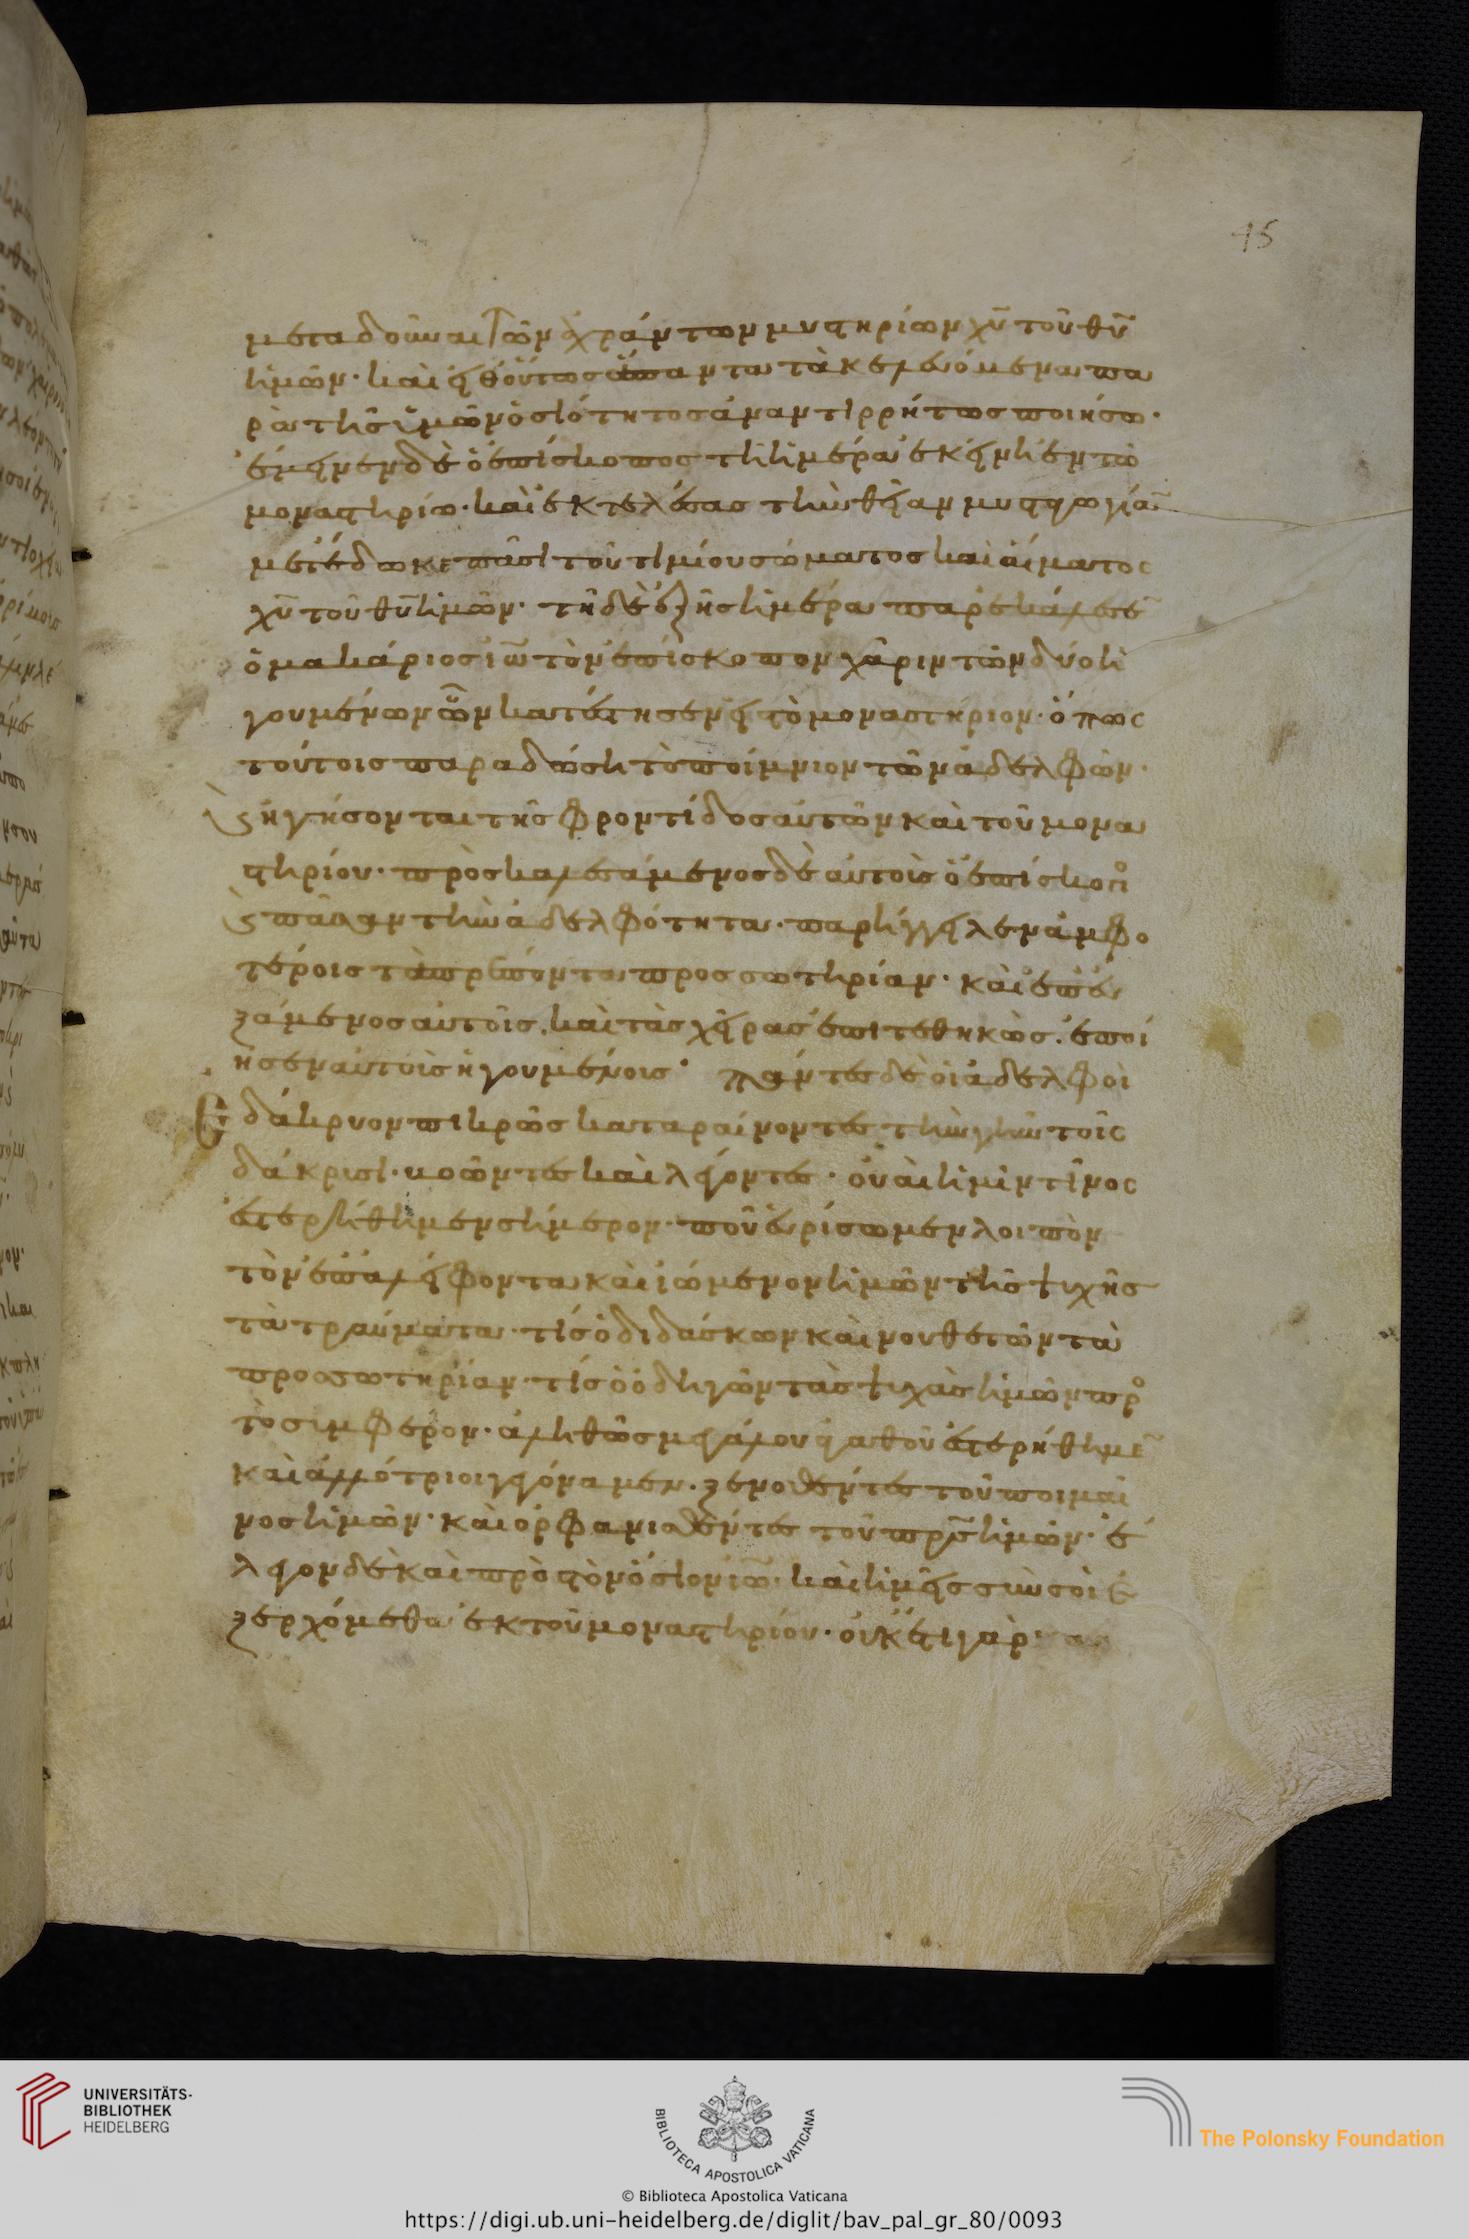 45
μεταδοῦναι τῶν ἀχράντων μυστηρίων χυ τοῦ θυ
ἡμῶν· καὶ εἶθ οὕτως ἅπαντα τὰ κελευόμενα πα
ρὰ τῆς ὑμῶν ὁσιότητος ἀναντιρρήτως ποιήσω·
ἔμεινεν δὲ ὁ ἐπίσκοπος τῇ ἡμέρα ἐκείνῃ ἐν τῶ
μοναστηρίω· καὶ ἐκτελέσας τὴν θείαν μυσταγωγίαν
μετέδωκε πᾶσι τοῦ τιμίου σώματος καὶ αἵματος
χυ τοῦ θυ ἡμῶν· τῆ δὲ ἑξῆς ἡμέρα παρεκάλεσε
ὁ μακάριος ιω τὸν ἐπίσκοπον χάριν τῶν δύο ἡ
γουμένων ὧν κατέστησεν εἰς τὸ μοναστήριον· ὅπως
τούτοις παραδώσῃ τὸ ποίμνιον τῶν ἀδελφῶν·
ἡγήσονται τῆς φροντίδος αὐτῶν καὶ τοῦ μονα
στηρίου· προσκαλεσάμενος δὲ αὐτοὺς ὁ ἐπίσκοπ
πᾶσαν τὴν ἀδελφότητα· παρήγγειλεν ἀμφο
τέροις τὰ πρέποντα προς σωτηρίαν· καὶ ἐπευ
ξάμενος αὐτοῖς, καὶ τὰς χεῖρας ἐπιτεθηκὼς· ἐποί
ησεν αὐτοὺς ἡγουμένοις· πάντες δὲ οἱ ἀδελφοὶ
ἐδάκρυον πικρῶς καταραίνοντες τὴν γῆν τοῖς
δάκρυσι· βοῶντες καὶ λέγοντες· οὐαὶ ἡμῖν τίνος
ἐστερήθημεν σήμερον· ποῦ εὑρίσωμεν λοιπὸν
τὸν ἐπαλείφοντα καὶ ἰώμενον ἡμῶν τῆς ψυχῆς
τὰ τραύματα· τίς ὁ διδάσκων καὶ νουθετῶν τὰ
προς σωτηρίαν· τίς ὁ ὁδηγῶν τὰς ψυχὰς ἡμῶν πρ
τὸ συμφερον· ἀληθῶς μεγάλου ἀγαθοῦ ἐστερήθημε
καὶ ἀλλότριοι γεγόναμεν· ξενοθέντες τοῦ ποιμαί
νος ἡμῶν· καὶ ὀρφανισθέντες τοῦ πρς ἡμῶν· ἔ
λεγον δὲ καὶ πρὸς τὸν ὅσιον ιω· καὶ ἡμεῖς σὺν σοὶ ἐ
ξερχόμεθα ἐκ τοῦ μοναστηρίου· οὐκ ἔστι γὰρ
UNIVERSITÄTS-
BIBLIOTHEK
HEIDELBERG
BIBLIOTECA APOSTOLICA VATICANA
The Polonsky Foundation
© Biblioteca Apostolica Vaticana
https://digi.ub.uni-heidelberg.de/diglit/bav_pal_gr_80/0093